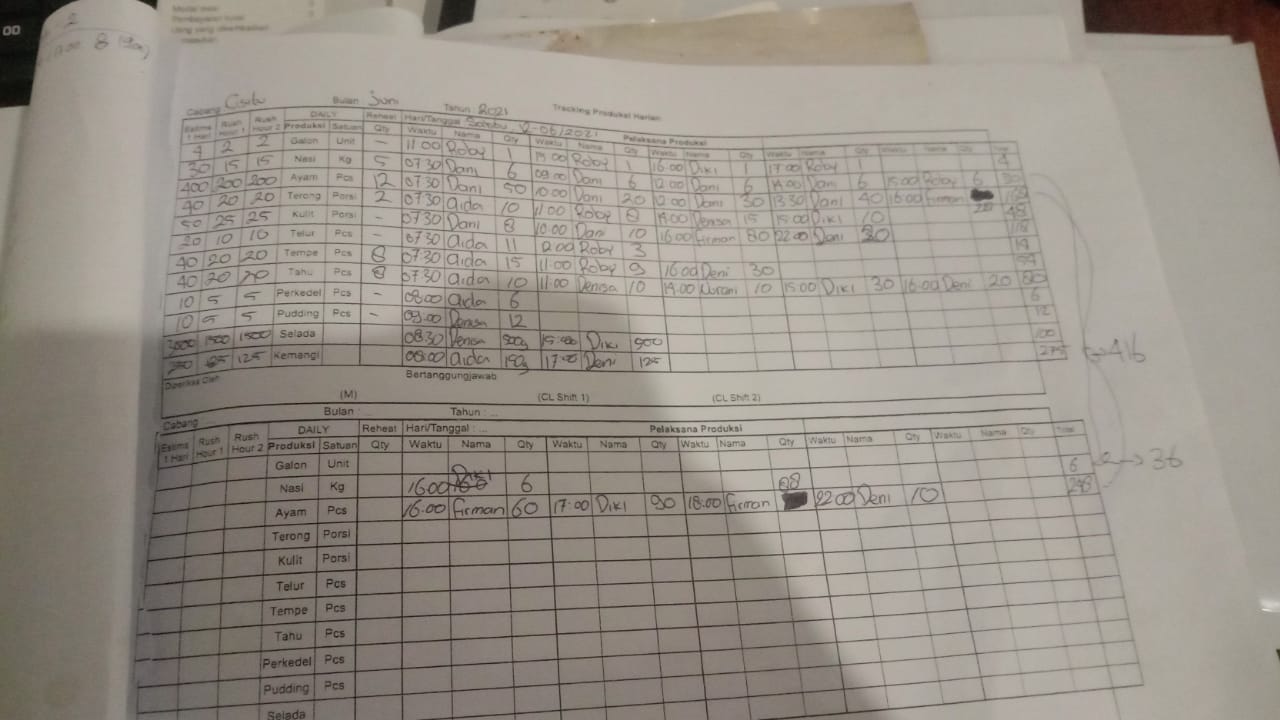 00
2
8
Modal awal
Pembayaran
Uang yang
Cabang Cisitu Bulan Juni Tahun 2021 Tracking Produksi Harian
Estima 1 Hari Rush Hour 1 Rush Hour 2 DAILY Produksi Satuan Reheat Qty Hari/Tanggal -06/2021 Pelaksana Produksi
Waktu Nama Qty Waktu Nama Qty Waktu Nama Qty Waktu Nama Qty Waktu Nama Qty Total
4 2 2 Galon Unit - 11.00 Roby 1 Roby 1 16:00 Diki 1 17:00 Roby 1 4
30 15 15 Nasi Kg 5 07.30 Dani 6 09.00 Dani 6 12.00 Dani 6 14.00 Dani 6 15:00 Roby 6 30
400 200 200 Ayam Pcs 12 07.30 Dani 50 10:00 Dani 20 12:00 Dani 30 13:30 Dani 40 16:00 Firman
40 20 20 Terong Porsi 2 07.30 Aida 10 11:00 Roby 8 14:00 Denisa 15 15:00 Diki 10
50 25 25 Kulit Porsi - 07.30 Dani 8 10:00 Dani 10 16:00 Firman 80 22:00 Dani 20
20 10 10 Telur Pcs - 07.30 Aida 11 12:00 Roby 3
40 20 20 Tempe Pcs 8 07.30 Aida 15 11:00 Roby 9 16:00 Deni 30
40 20 20 Tahu Pcs 8 07.30 Aida 10 11:00 Denisa 10 14:00 10 15:00 Diki 30 16:00 Deni 20 80
10 5 5 Perkedel Pcs - 08:00 Aida 6 6
10 5 5 Pudding Pcs - 09.00 Denisa 12 12
3000 1500 1500 Selada 08:30 Denisa Diki 500
250 125 125 Kemangi 08:00 Aida 150g Deni 125 275
416
Diperiksa Oleh Bertanggungjawab
(M) (CL Shift 1) (CL Shift 2)
Cabang ... Bulan : ... Tahun : ...
Estima 1 Hari Rush Hour 1 Rush Hour 2 DAILY Produksi Satuan Reheat Qty Hari/Tanggal : ... Pelaksana Produksi
Waktu Nama Qty Waktu Nama Qty Waktu Nama Qty Waktu Nama Qty Waktu Nama Qty Total
Galon Unit
Nasi Kg 16:00 Diki 6 6 36
Ayam Pcs 16:00 Firman 60 17:00 Diki 90 18:00 Firman 88 22:00 Deni 10 248
Terong Porsi
Kulit Porsi
Telur Pcs
Tempe Pcs
Tahu Pcs
Perkedel Pcs
Pudding Pcs
Selada